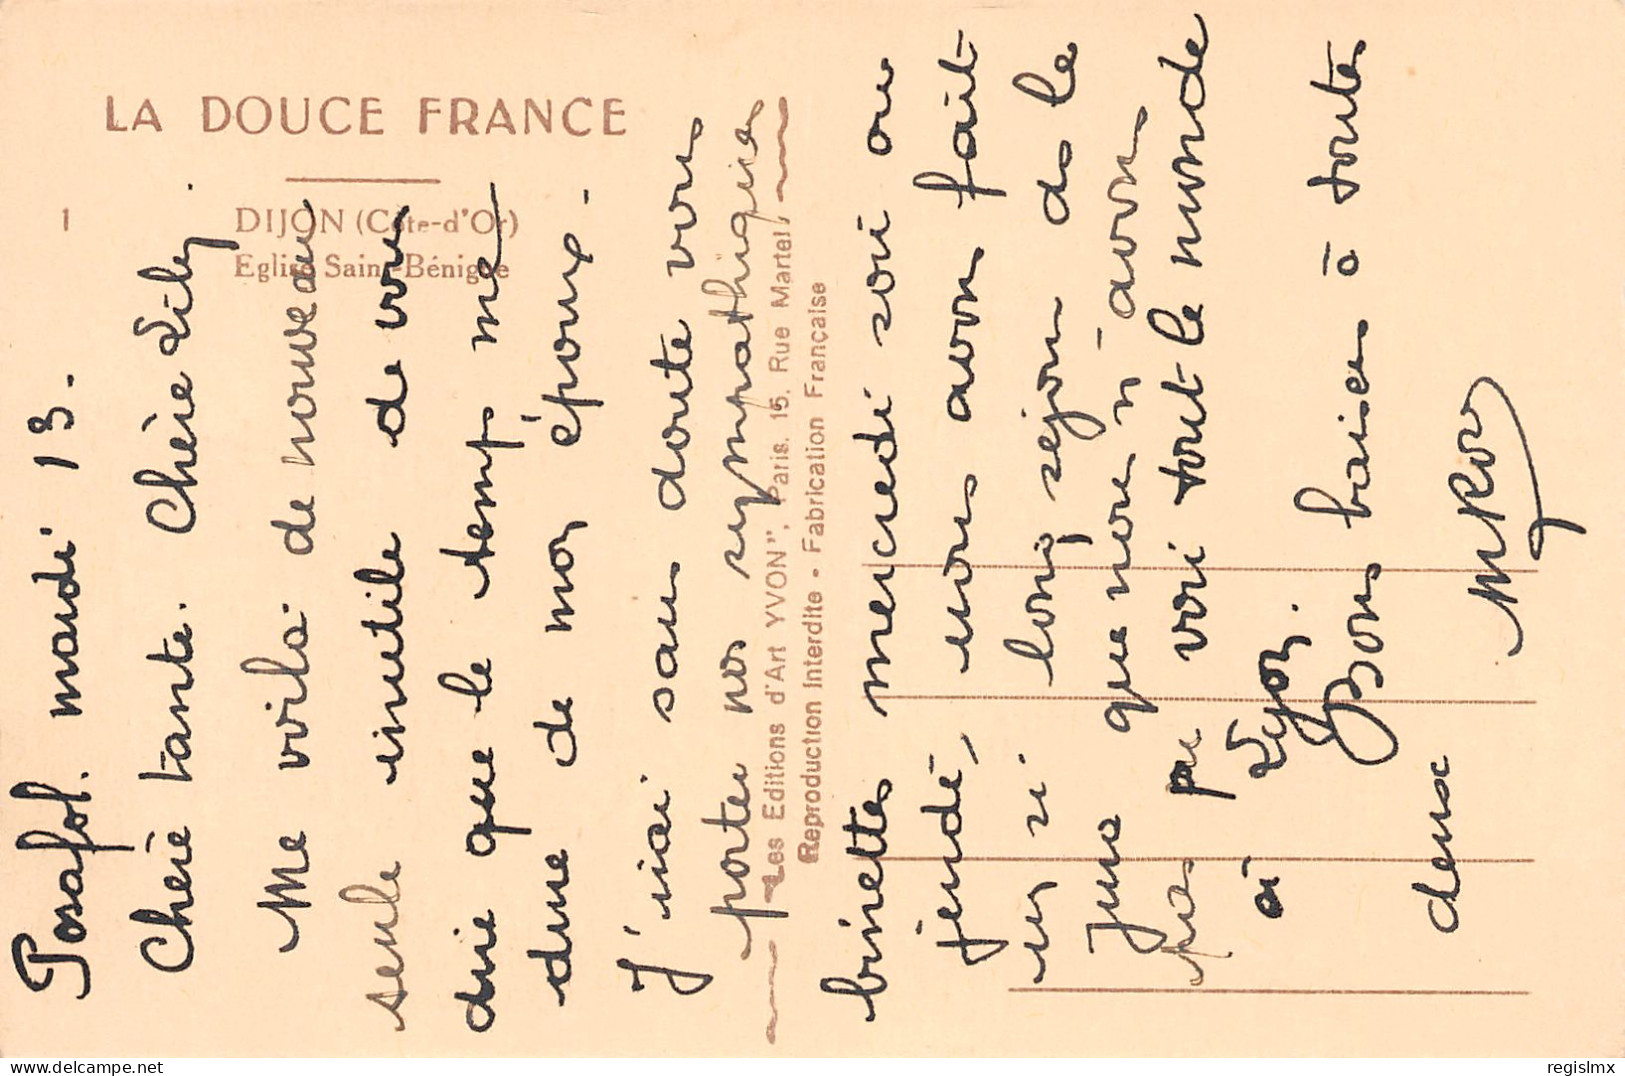 LA DOUCE FRANCE
1
DIJON (Côte-d'Or)
Eglise Saint-Bénigne
"Les Editions d'Art YVON", Paris, 15, Rue Martel
Reproduction Interdite - Fabrication Française
Posafol. mardi 13.
Chère tante. Chère Lily.
Me voilà de nouveau
seule inutile de vous
dire que le temps me
dure de mon époux.
J'irai sans doute vous
porter nos sympathiques
binettes mercredi soir ou
jeudi, nous avons fait
un si long séjour ds le
Jura que nous n'avons
pas pu voir tout le monde
à Lyon.
Bons baisers à toutes
deux
regislmx